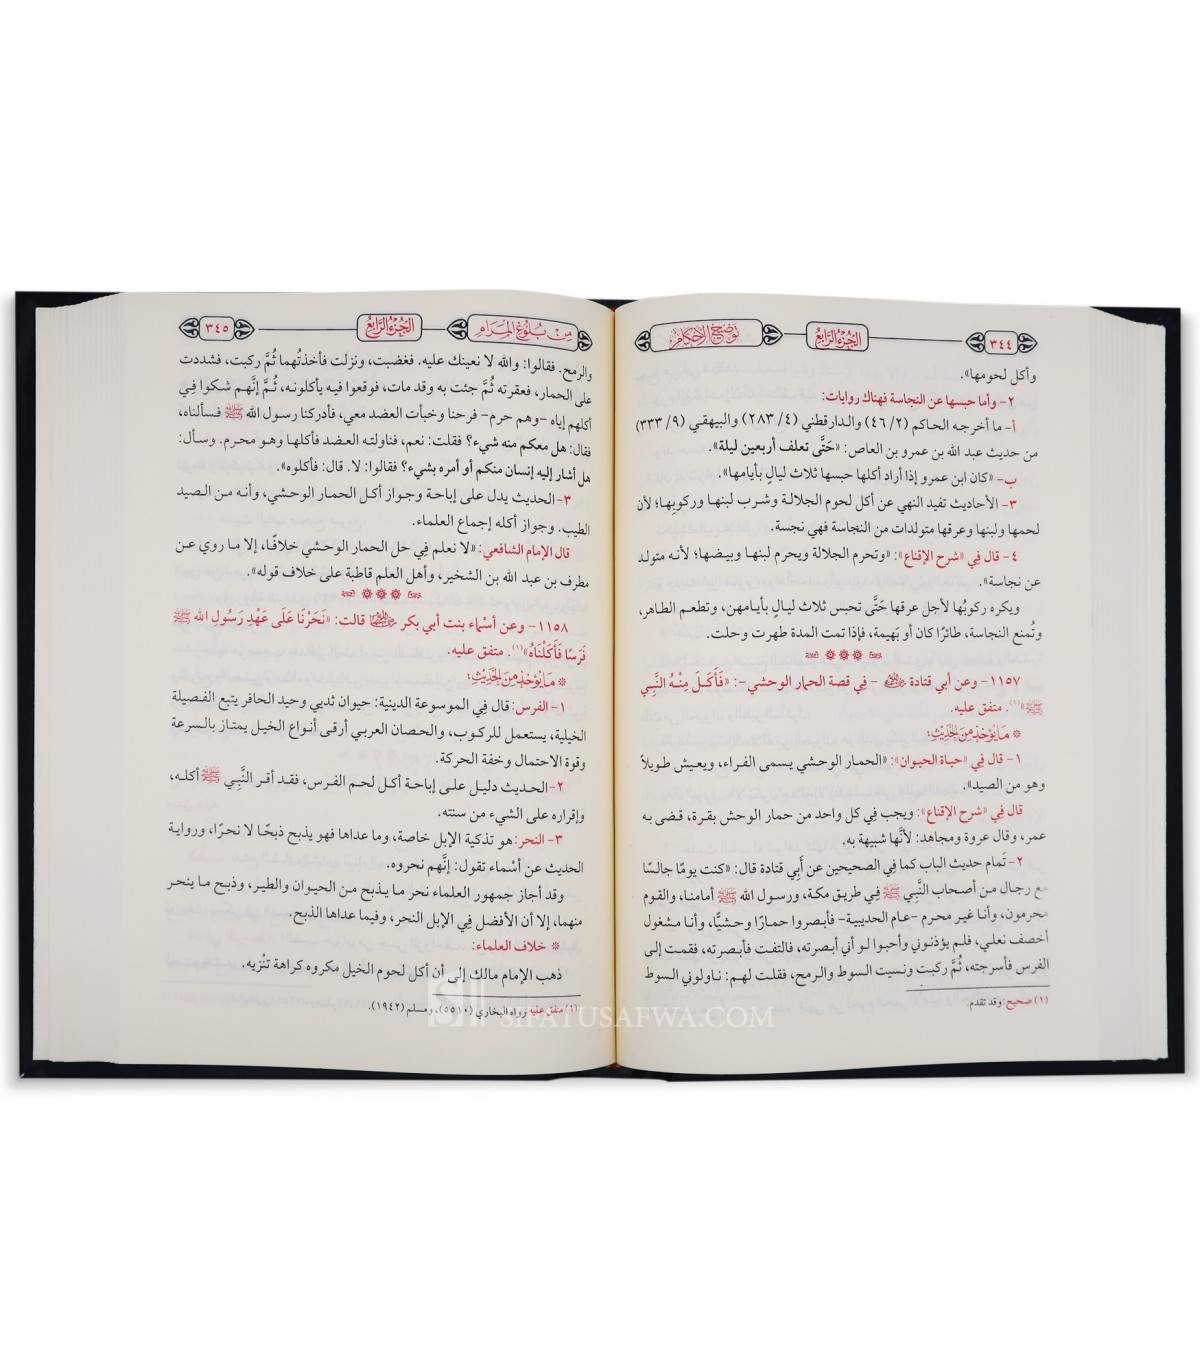 ٣٤٤ الجزء الرابع توضيح الأحكام
وأكل لحومها».
٢- وأما حبسها عن النجاسة فهناك روايات:
أ- ما أخرجه الحاكم (٤٦/٢) والدارقطني (٢٨٣/٤) والبيهقي (٣٣٣/٩)
من حديث عبد الله بن عمرو بن العاص: «حَتَّى تعلف أربعين ليلة».
ب- «كان ابن عمرو إذا أراد أكلها حبسها ثلاث ليالٍ بأيامها».
٣- الأحاديث تفيد النهي عن أكل لحوم الجلالة وشرب لبنها وركوبها؛ لأن
لحمها ولبنها وعرقها متولدات من النجاسة فهي نجسة.
٤- قال في «شرح الإقناع»: «وتحرم الجلالة ويحرم لبنها وبيضها؛ لأنه متولد
عن نجاسة».
ويكره ركوبُها لأجل عرقها حَتَّى تحبس ثلاث ليالٍ بأيامهن، وتطعم الطاهر،
وتُمنع النجاسة، طائرًا كان أو بَهيمة، فإذا تمت المدة طهرت وحلت.
١١٥٧- وعن أبي قتادة رضي الله عنه - فِي قصة الحمار الوحشي-: «فَأَكَلَ مِنْهُ النَّبِي
ﷺ»(١). متفق عليه.
* مَا يُؤْخَذُ مِنَ الحَدِيثِ:
١- قال فِي «حياة الحيوان»: «الحمار الوحشي يسمى الفراء، ويعيش طويلاً
وهو من الصيد».
قال فِي «شرح الإقناع»: ويجب في كل واحد من حمار الوحش بقرة، قضى به
عمر، وقال عروة ومجاهد: لأنَّها شبيهة به.
٢- تَمام حديث الباب كما فِي الصحيحين عن أَبِي قتادة قال: «كنت يومًا جالسًا
مع رجال من أصحاب النَّبِي ﷺ فِي طريق مكة، ورسول الله ﷺ أمامنا، والقوم
محرمون، وأنا غير محرم -عام الحديبية- فأبصروا حمارًا وحشيًّا، وأنا مشغول
أخصف نعلي، فلم يؤذنوني وأحبوا لو أني أبصرته، فالتفت فأبصرته، فقمت إلى
الفرس فأسرجته، ثُمَّ ركبت ونسيت السوط والرمح، فقلت لهم: ناولوني السوط
(١) صحيح: وقد تقدم.
من بلوغ المرام الجزء الرابع ٣٤٥
والرمح. فقالوا: والله لا نعينك عليه. فغضبت، ونزلت فأخذتُهما ثُمَّ ركبت، فشددت
على الحمار، فعقرته ثُمَّ جئت به وقد مات، فوقعوا فيه يأكلونه، ثُمَّ إنَّهم شكوا فِي
أكلهم إياه -وهم حرم- فرحنا وخبأت العضد معي، فأدركنا رسول الله ﷺ فسألناه،
فقال: هل معكم منه شيء؟ فقلت: نعم، فناولته العضد فأكلها وهو محرم. وسأل:
هل أشار إليه إنسان منكم أو أمره بشيء؟ فقالوا: لا. قال: فأكلوه».
٣- الحديث يدل على إباحة وجواز أكل الحمار الوحشي، وأنه من الصيد
الطيب. وجواز أكله إجماع العلماء.
قال الإمام الشافعي: «لا نعلم فِي حل الحمار الوحشي خلافًا، إلا ما روي عن
مطرف بن عبد الله بن الشخير، وأهل العلم قاطبة على خلاف قوله».
١١٥٨- وعن أسْماء بنت أبي بكر رضي الله عنها قالت: «نَحَرْنَا عَلَى عَهْدِ رَسُولِ الله ﷺ
فَرَسًا فَأَكَلْنَاهُ»(١). متفق عليه.
* مَا يُؤْخَذُ مِنَ الحَدِيثِ:
١- الفرس: قال فِي الموسوعة الدينية: حيوان ثديي وحيد الحافر يتبع الفصيلة
الخيلية، يستعمل للركوب، والحصان العربي أرقى أنواع الخيل يمتاز بالسرعة
وقوة الاحتمال وخفة الحركة.
٢- الحديث دليل على إباحة أكل لحم الفرس، فقد أقر النَّبِي ﷺ أكله،
وإقراره على الشيء من سنته.
٣- النحر: هو تذكية الإبل خاصة، وما عداها فهو يذبح ذبحًا لا نحرًا، ورواية
الحديث عن أسْماء تقول: إنَّهم نحروه.
وقد أجاز جمهور العلماء نحر ما يذبح من الحيوان والطير، وذبح ما ينحر
منهما، إلا أن الأفضل فِي الإبل النحر، وفيما عداها الذبح.
* خلاف العلماء:
ذهب الإمام مالك إلى أن أكل لحوم الخيل مكروه كراهة تنْزيه.
(١) متفق عليه رواه البخاري (٥٥١٠)، ومسلم (١٩٤٢).
SIFATUSAFWA.COM